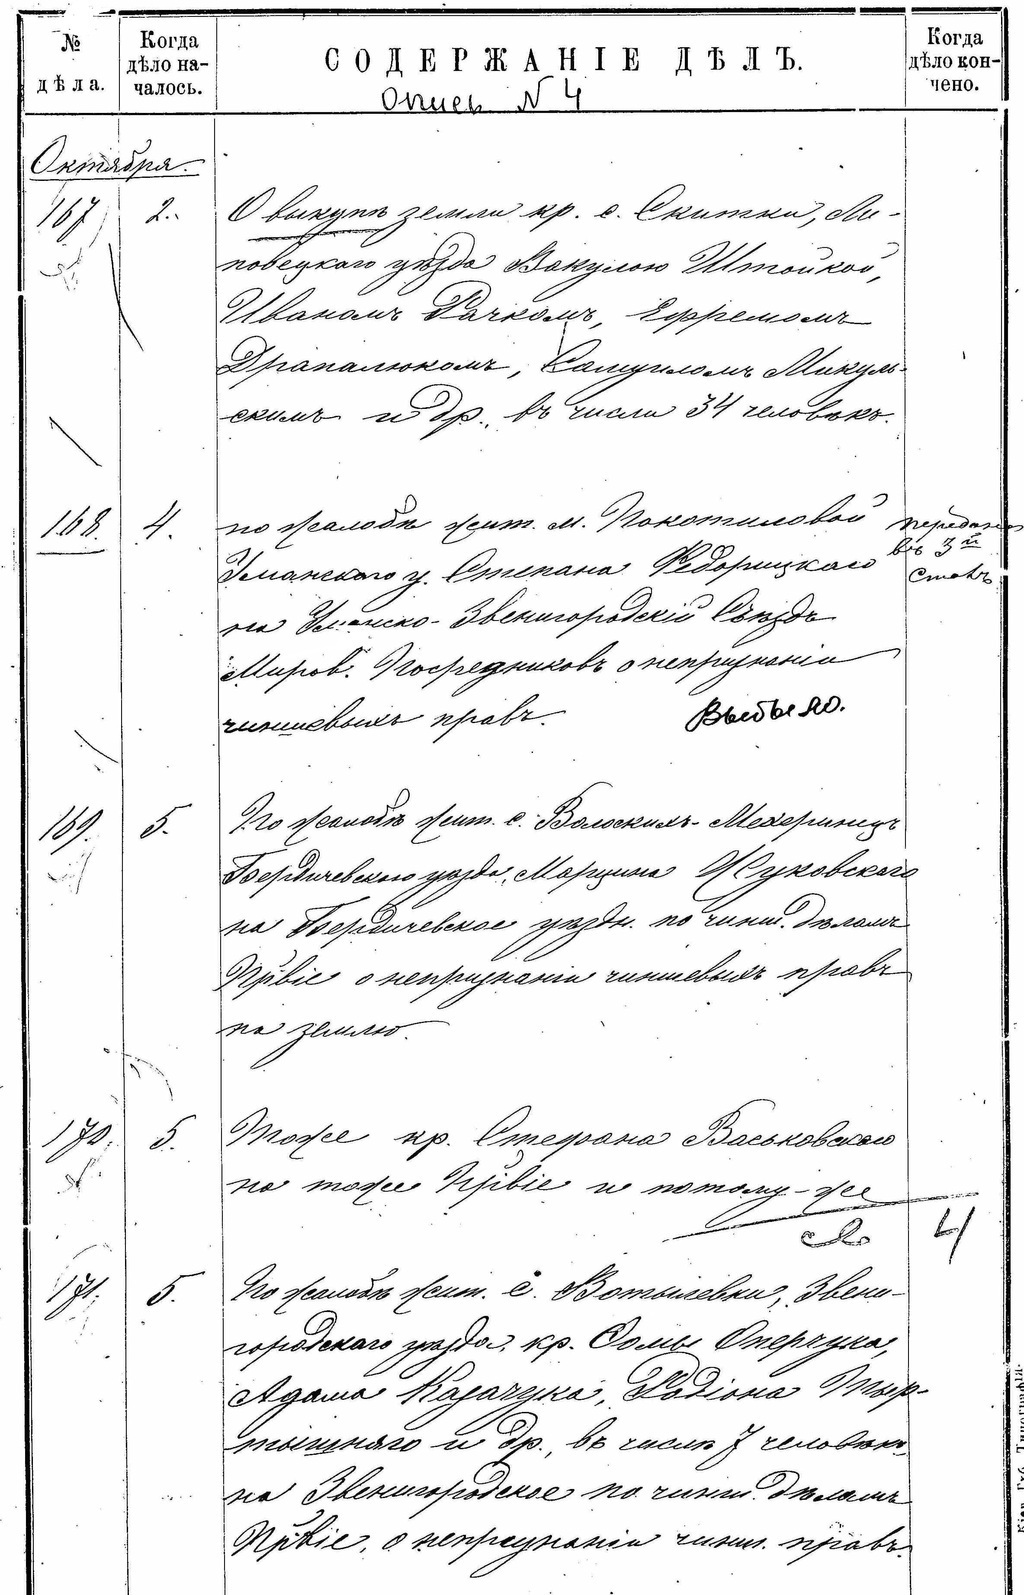 № дѣла.
Когда дѣло на-
чалось.
СОДЕРЖАНІЕ ДѢЛЪ.
Когда дѣло кон-
чено.
Опись N 4
Октября.
167 2. О выкупѣ земли кр. с. Скитки, Ли-
повецкаго уѣзда Вакулою Штойкой,
Иваномъ Рачкомъ, Ефремомъ
Драпалюкомъ, Самуиломъ Микуль-
скимъ и др., въ числѣ 34 человѣкъ.
168. 4. по жалобѣ жит. м. Покотиловой передано
Уманскаго у. Степана Федорицкаго въ 3й
на Уманско-Звенигородскій Съѣздъ столъ
Миров. Посредниковъ о непризнаніи
чиншевыхъ правъ. Выбыло.
169. 5. По жалобѣ жит. с. Волоскихъ-Мехеринецъ
Бердичевскаго уѣзда, Марцина Жуковскаго
на Бердичевское уѣздн. по чинш. дѣламъ
Пр̃віе о непризнаніи чиншевыхъ правъ
на землю.
170. 5. Тоже кр. Стефана Васьковскаго
на тоже Пр̃віе и потому-же
4
171. 5. По жалобѣ жит. с. Вотылевки, Звени-
городскаго уѣзда, кр. Ѳомы Оперчука,
Адама Казачука, Родіона Тыр-
тышняго и др., въ числѣ 7 человѣкъ
на Звенигородское по чинш. дѣламъ
Пр̃віе, о непризнаніи чинш. правъ.
Кіев. Губ. Типографія.